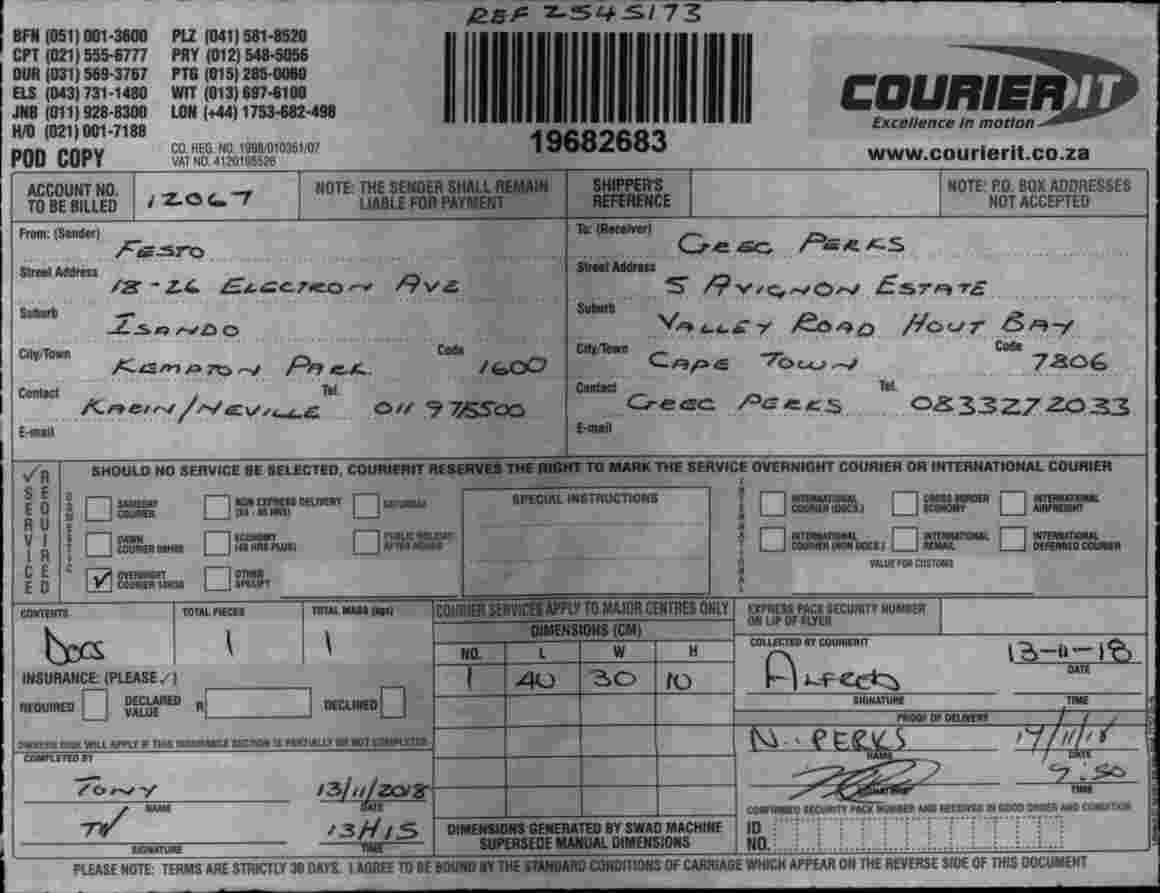 REF 2545173
BFN (051) 001-3600 PLZ (041) 581-8520
CPT (021) 555-6777 PRY (012) 548-5056
DUR (031) 569-3767 PTG (015) 285-0060
ELS (043) 731-1480 WIT (013) 697-6100
JNB (011) 928-8300 LON (+44) 1753-682-498
H/O (021) 001-7188
POD COPY
CO. REG. NO. 1998/010351/07
VAT NO. 4120195526
19682683
COURIERIT
Excellence in motion
www.courierit.co.za
ACCOUNT NO. TO BE BILLED 12067
NOTE: THE SENDER SHALL REMAIN LIABLE FOR PAYMENT
SHIPPER'S REFERENCE
NOTE: P.O. BOX ADDRESSES NOT ACCEPTED
From: (Sender) FESTO
Street Address 18-26 ELECTRON AVE
Suburb ISANDO
City/Town KEMPTON PARK Code 1600
Contact KABIN/NEVILLE Tel. 011 9715500
E-mail
To: (Receiver) GREG PERKS
Street Address 5 AVIGNON ESTATE
Suburb VALLEY ROAD HOUT BAY
City/Town CAPE TOWN Code 7806
Contact GREG PERKS Tel. 0833272033
E-mail
✓ SERVICE REQUIRED
SHOULD NO SERVICE BE SELECTED, COURIERIT RESERVES THE RIGHT TO MARK THE SERVICE OVERNIGHT COURIER OR INTERNATIONAL COURIER
DOMESTIC
SAMEDAY COURIER
NON EXPRESS DELIVERY
SATURDAY
DAWN COURIER
ECONOMY (48 HRS PLUS)
PUBLIC HOLIDAY AFTER HOURS
✓ OVERNIGHT COURIER
OTHER SPECIFY
SPECIAL INSTRUCTIONS
INTERNATIONAL
INTERNATIONAL COURIER (DOCS.)
CROSS BORDER ECONOMY
INTERNATIONAL AIRFREIGHT
INTERNATIONAL COURIER (NON DOCS.)
INTERNATIONAL REMAIL
INTERNATIONAL DEFERRED COURIER
VALUE FOR CUSTOMS
CONTENTS Docs
TOTAL PIECES 1
TOTAL MASS (kgs) 1
INSURANCE: (PLEASE ✓)
REQUIRED DECLARED VALUE R DECLINED
OWNERS RISK WILL APPLY IF THIS INSURANCE SECTION IS PARTIALLY OR NOT COMPLETED
COMPLETED BY
TONY 13/11/2018
NAME DATE
13H15
SIGNATURE TIME
COURIER SERVICES APPLY TO MAJOR CENTRES ONLY
DIMENSIONS (CM)
NO. L W H
1 40 30 10
DIMENSIONS GENERATED BY SWAD MACHINE SUPERSEDE MANUAL DIMENSIONS
EXPRESS PACK SECURITY NUMBER ON LIP OF FLYER
COLLECTED BY COURIERIT
ALFRED 13-11-18
SIGNATURE DATE
TIME
PROOF OF DELIVERY
N. PERKS 14/11/18
NAME DATE
9.50
SIGNATURE TIME
CONFIRMED SECURITY PACK NUMBER AND RECEIVED IN GOOD ORDER AND CONDITION
ID NO.
PLEASE NOTE: TERMS ARE STRICTLY 30 DAYS. I AGREE TO BE BOUND BY THE STANDARD CONDITIONS OF CARRIAGE WHICH APPEAR ON THE REVERSE SIDE OF THIS DOCUMENT